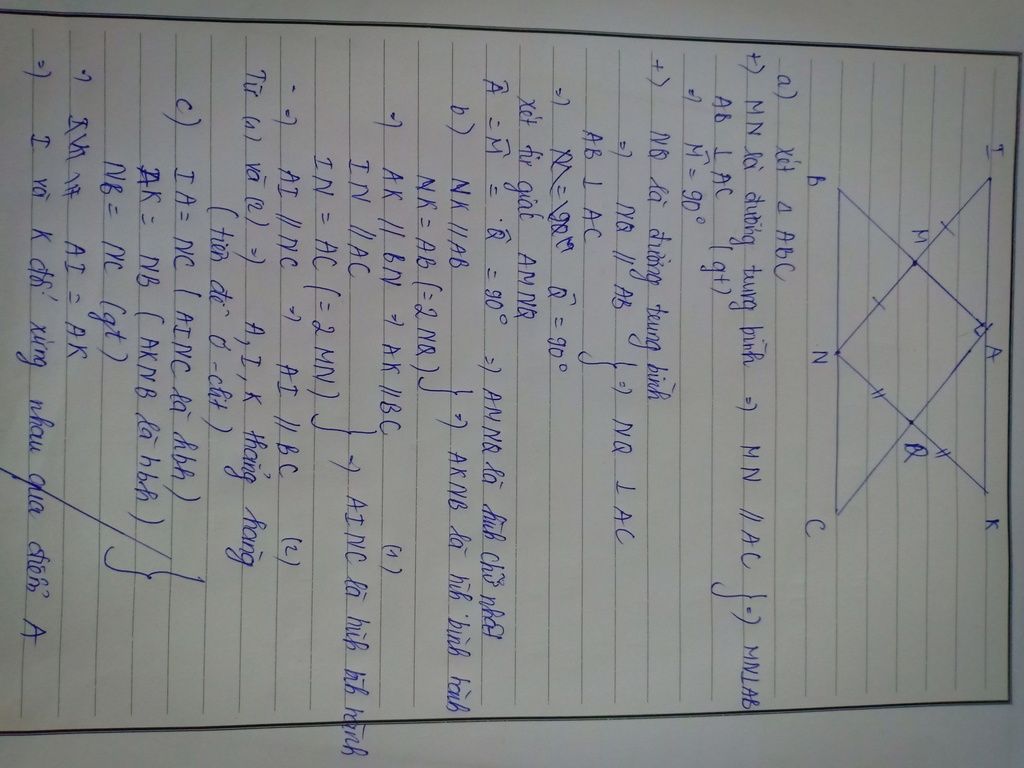 I A K
M Q
B N C
a) Xét Δ ABC
+) MN là đường trung bình => MN // AC } => MN ⊥ AB
AB ⊥ AC (gt)
=> M̂ = 90°
+) NQ là đường trung bình
=> NQ // AB } => NQ ⊥ AC
AB ⊥ AC
=> Q̂ = 90°
Xét tứ giác AMNQ
Â = M̂ = Q̂ = 90° => AMNQ là hình chữ nhật
b) NK // AB
NK = AB (= 2 NQ) } => AKNB là hình bình hành
=> AK // BN => AK // BC (1)
IN // AC
IN = AC (= 2 MN) } => AINC là hình bình hành
=> AI // NC => AI // BC (2)
Từ (1) và (2) => A, I, K thẳng hàng
(tiên đề Ơ-clit)
c) IA = NC (AINC là hbh)
AK = NB (AKNB là hbh) }
NB = NC (gt)
=> AI = AK
=> I và K đối xứng nhau qua điểm A